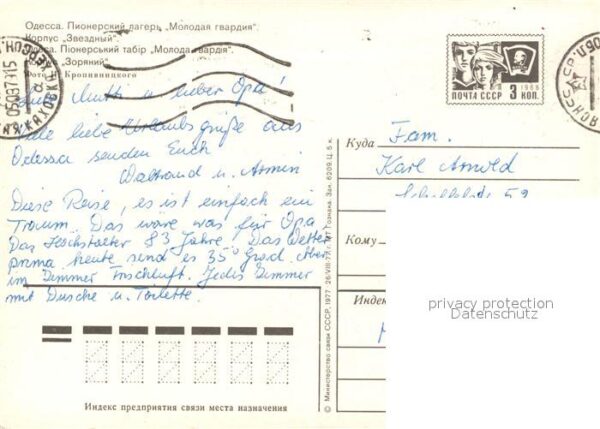 Одесса. Пионерский лагерь „Молодая гвардия“.
Корпус „Звездный“.
Одеса. Піонерський табір „Молода гвардія“.
„Зоряний“.
Фото Кропивницкого
Mutti u. lieber Opa!
liebe Urlaubsgrüße aus
Odessa senden Euch
Waltraud u. Armin
Diese Reise, es ist einfach ein
Traum. Das wäre was für Opa
Das 83 Jahre. Das Wetter
prima heute sind es 35° Grad. Aber
im Zimmer Frischluft. Jedes Zimmer
mit Dusche u. Toilette.
ПОЧТА СССР 3 КОП.
1968
Куда Fam.
Karl Arnold
59
Кому
Индекс
privacy protection
Datenschutz
© Министерство связи СССР, 1977 26/VIII-77 г. Гознака. Зак. 6209. Ц. 5 к.
Индекс предприятия связи места назначения